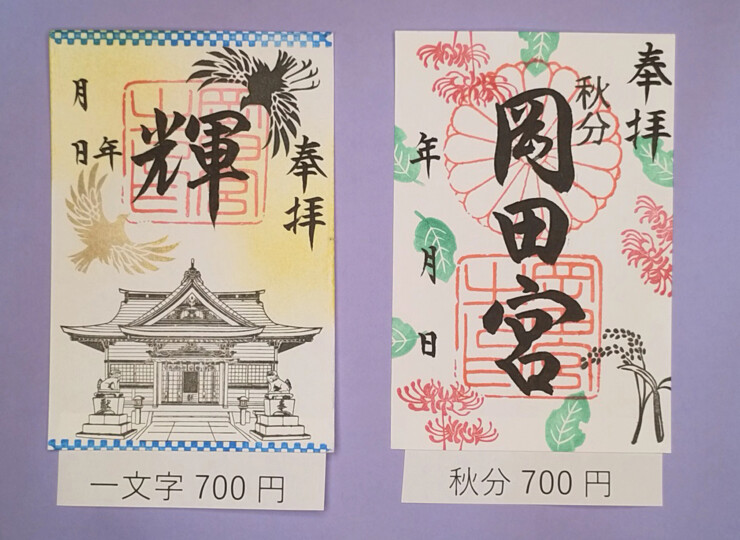 奉拝
輝
年
月
日
一文字 700 円
奉拝
秋分
岡田宮
年
月
日
秋分 700 円